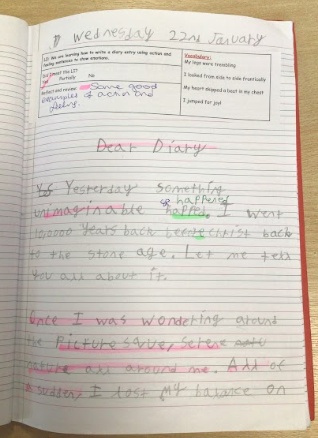 Wednesday 22nd January
LI: We are learning how to write a diary entry using action and
feeling sentences to show emotions.
Did I meet the LI?
Yes Partially No
Reflect and review Some good
examples of action and
feeling.
Vocabulary:
My legs were trembling
I looked from side to side frantically
My heart skipped a beat in my chest
I jumped for joy!
Dear Diary
Yesterday something
unimaginable happed. I went
sp happened
10,0000 years back christ back
to the stone age. Let me tell
you all about it.
Once I was wondering around
the Picturesque, serene
nature all around me. All of
a sudden I lost My balance on